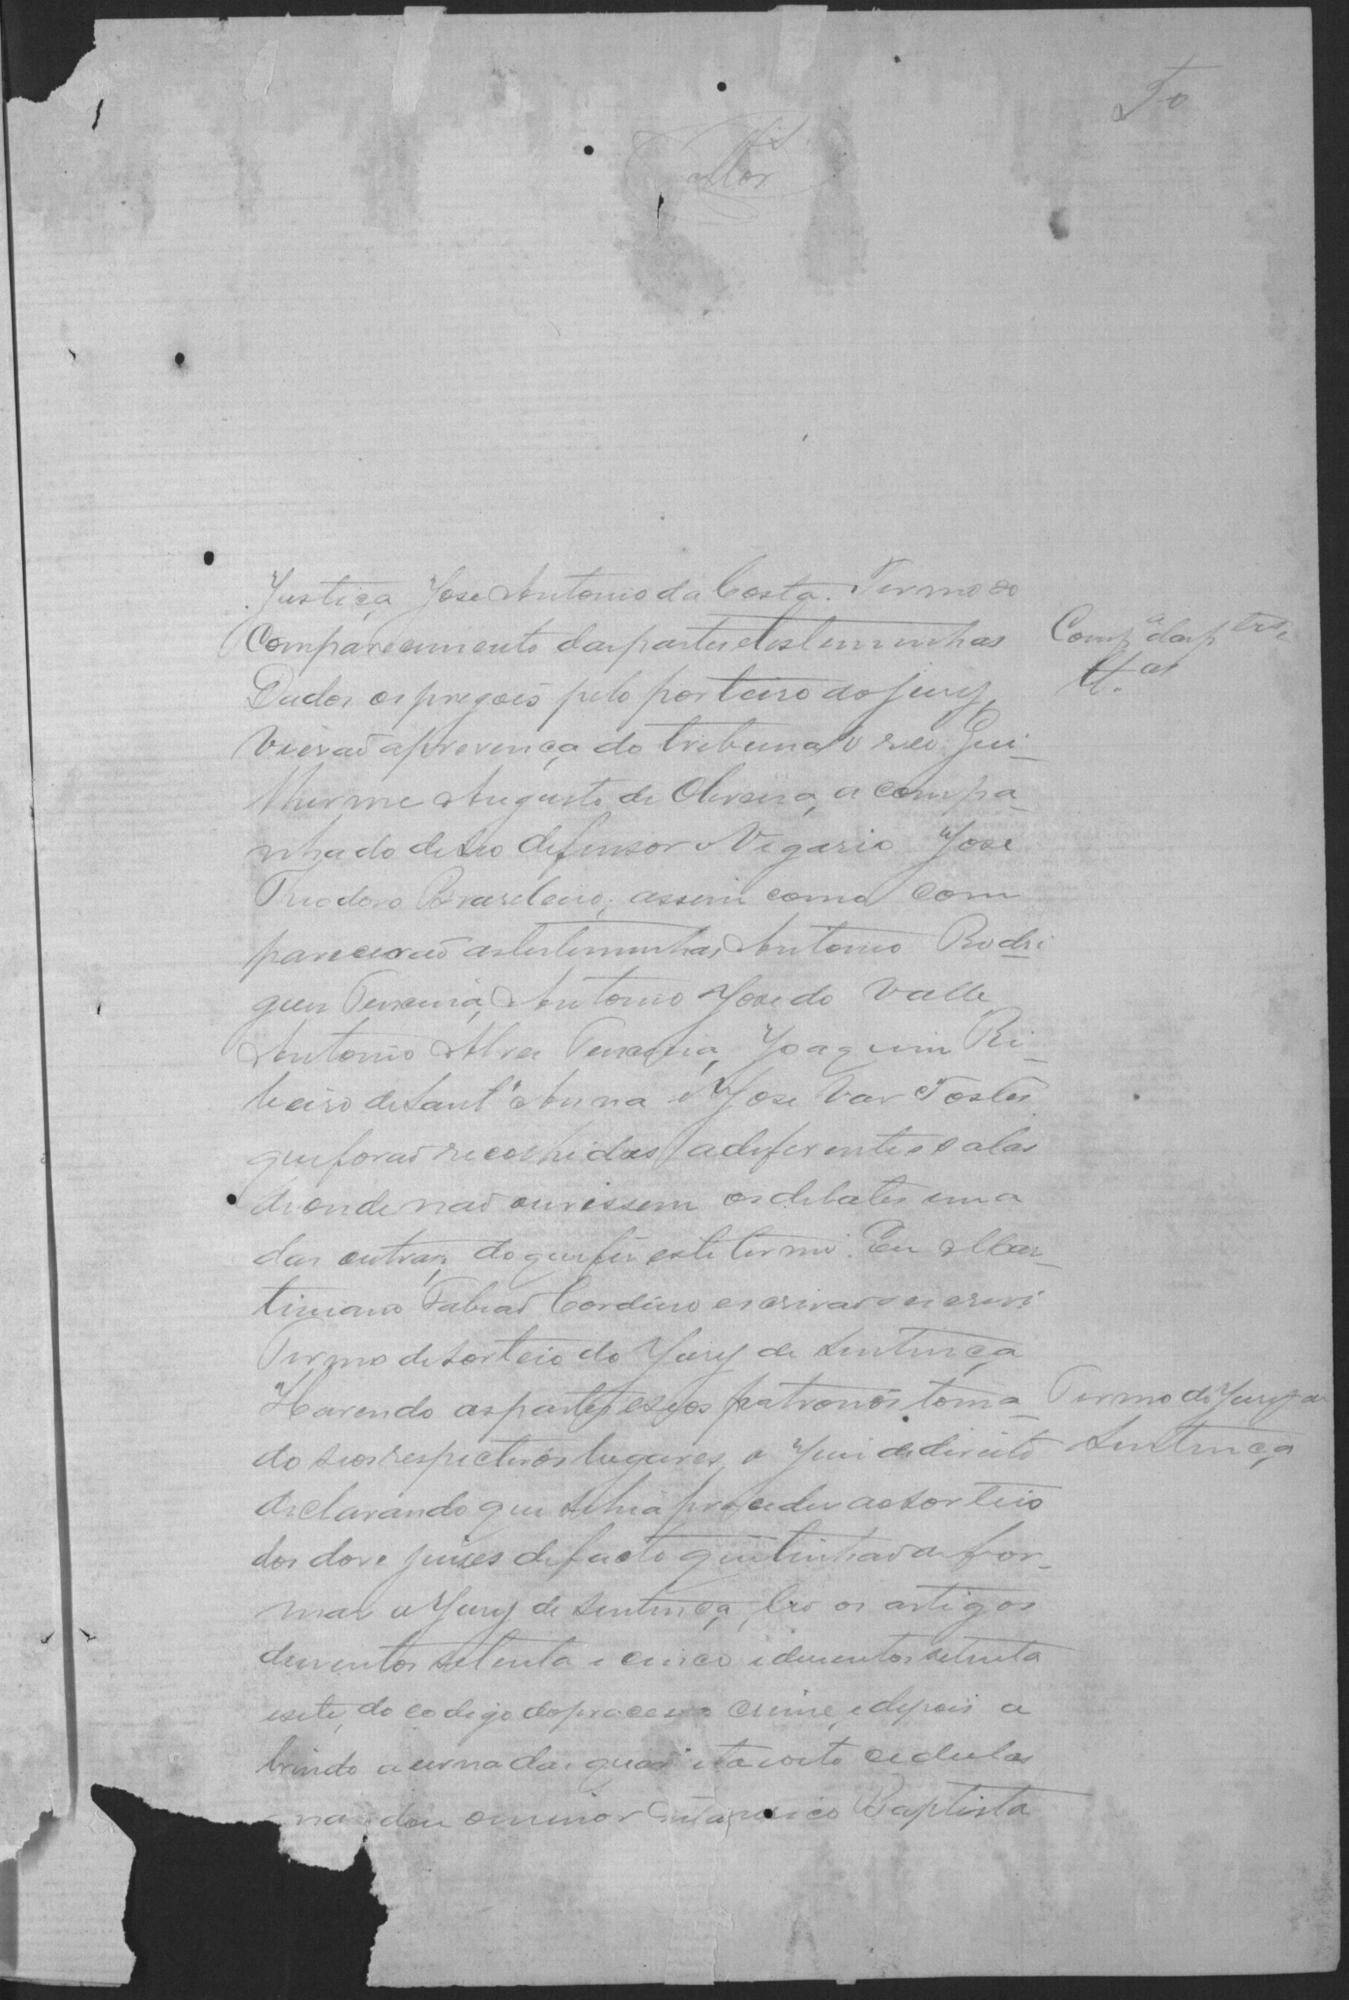 Justiça Jose Antonio da Costa. Termo do
Comparecimento das partes e testemunhas
Comp.ª das p.tes e
tt.as
Dados os pregoes pelo porteiro do jury,
vierão a prezença do tribunal o reo Gui-
lherme Augusto de Oliveira, acompa-
nhado de seo defensor o Vigario Jose
Theodoro Brasileiro, assim como com
parecerão as testemunhas, Antonio Rodri
gues Teixeira, Antonio Jose do Valle,
Antonio Alves Teixeira, Joaquim Ri-
beiro de Sant'Anna e Jose Vas Tostes
que forão recolhidas a diferentes salas
de onde não ouvissem os debates uma
das outras; do que fis este termo. Eu Mar-
timiano Fabião Cordeiro escrivão o escrevi
Termo de sorteio do Jury de Sentença
Havendo as partes e seos patronos toma-
Termo do Jury de
Sentença
do seos respectivos lugares, o Juis de direito
declarando que se hia proceder ao sorteio
dos dose juises de facto que tinhão de for-
mar o Jury de Sentença, leo os artigos
dusentos setenta e cinco e dusentos setenta
e sete, do codigo do processo crime, e depois a
brindo a urna das quarenta e oito cedulas
mandou o menor Baptista